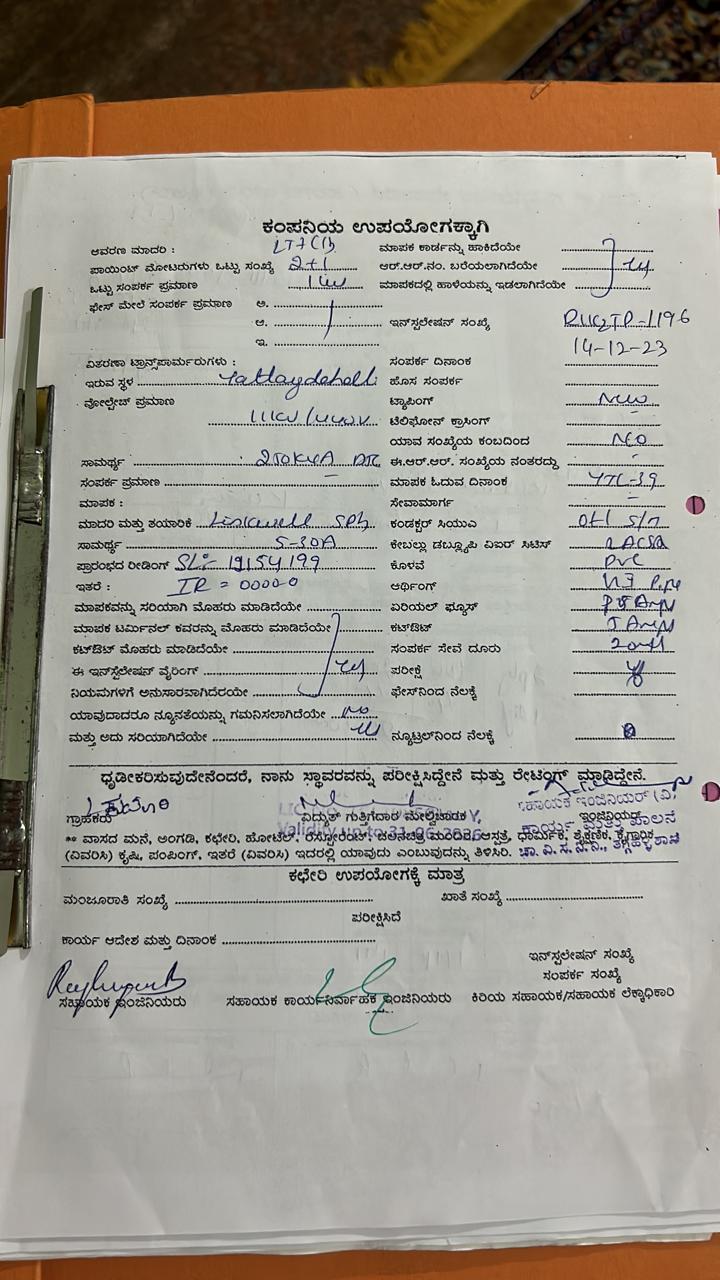 ಕಂಪನಿಯ ಉಪಯೋಗಕ್ಕಾಗಿ
ಆವರಣ ಮಾದರಿ : ಮಾಪಕ ಕಾರ್ಡನ್ನು ಹಾಕಿದೆಯೇ
ಪಾಯಿಂಟ್ ಮೋಟರುಗಳು ಒಟ್ಟು ಸಂಖ್ಯೆ 2+1 ಆರ್.ಆರ್.ನಂ. ಬರೆಯಲಾಗಿದೆಯೇ
ಒಟ್ಟು ಸಂಪರ್ಕ ಪ್ರಮಾಣ 1KW ಮಾಪಕದಲ್ಲಿ ಹಾಳೆಯನ್ನು ಇಡಲಾಗಿದೆಯೇ
ಫೇಸ್ ಮೇಲೆ ಸಂಪರ್ಕ ಪ್ರಮಾಣ ಅ.
ಆ. ಇನ್‌ಸ್ಟಲೇಷನ್ ಸಂಖ್ಯೆ
ಇ. 14-12-23
ವಿತರಣಾ ಟ್ರಾನ್ಸ್‌ಪಾರ್ಮರುಗಳು : ಸಂಪರ್ಕ ದಿನಾಂಕ
ಇರುವ ಸ್ಥಳ ಹೊಸ ಸಂಪರ್ಕ
ವೋಲ್ಟೇಜ್ ಪ್ರಮಾಣ ಟ್ಯಾಪಿಂಗ್ New
11KV/440V ಟೆಲಿಫೋನ್ ಕ್ರಾಸಿಂಗ್
ಯಾವ ಸಂಖ್ಯೆಯ ಕಂಬದಿಂದ NO
ಸಾಮರ್ಥ್ಯ 250KVA ಈ.ಆರ್.ಆರ್. ಸಂಖ್ಯೆಯ ನಂತರದ್ದು
ಸಂಪರ್ಕ ಪ್ರಮಾಣ ಮಾಪಕ ಓದುವ ದಿನಾಂಕ YTC-39
ಮಾಪಕ : ಸೇವಾಮಾರ್ಗ
ಮಾದರಿ ಮತ್ತು ತಯಾರಿಕೆ Linkwell SPh ಕಂಡಕ್ಟರ್ ಸಿಯುಎ
ಸಾಮರ್ಥ್ಯ 5-30A ಕೇಬಲ್ಲು ಡಬ್ಲ್ಯೂಪಿ ವಿಐರ್ ಸಿಟಿಸ್
ಪ್ರಾರಂಭದ ರೀಡಿಂಗ್ SL:- 19154199 ಕೊಳವೆ PVC
ಇತರೆ : IR = 00000 ಆರ್ಥಿಂಗ್
ಮಾಪಕವನ್ನು ಸರಿಯಾಗಿ ಮೊಹರು ಮಾಡಿದೆಯೇ ಏರಿಯಲ್ ಫ್ಯೂಸ್
ಮಾಪಕ ಟರ್ಮಿನಲ್ ಕವರನ್ನು ಮೊಹರು ಮಾಡಿದೆಯೇ ಕಟ್‌ಔಟ್
ಕಟ್‌ಔಟ್ ಮೊಹರು ಮಾಡಿದೆಯೇ ಸಂಪರ್ಕ ಸೇವೆ ದೂರು
ಈ ಇನ್‌ಸ್ಟೆಲೇಷನ್ ವೈರಿಂಗ್ ಪರೀಕ್ಷೆ
ನಿಯಮಗಳಿಗೆ ಅನುಸಾರವಾಗಿದೆಯೇ ಫೇಸ್‌ನಿಂದ ನೆಲಕ್ಕೆ
ಯಾವುದಾದರೂ ನ್ಯೂನತೆಯನ್ನು ಗಮನಿಸಲಾಗಿದೆಯೇ NO
ಮತ್ತು ಅದು ಸರಿಯಾಗಿದೆಯೇ ನ್ಯೂಟ್ರಲ್‌ನಿಂದ ನೆಲಕ್ಕೆ
ಧೃಡೀಕರಿಸುವುದೇನೆಂದರೆ, ನಾನು ಸ್ಥಾವರವನ್ನು ಪರೀಕ್ಷಿಸಿದ್ದೇನೆ ಮತ್ತು ರೇಟಿಂಗ್ ಮಾಡಿದ್ದೇನೆ.
ಗ್ರಾಹಕರು ವಿದ್ಯುತ್ ಗುತ್ತಿಗೆದಾರ ಮೇಲ್ವಿಚಾರಕ ಇಂಜಿನಿಯರ್
** ವಾಸದ ಮನೆ, ಅಂಗಡಿ, ಕಛೇರಿ, ಹೋಟೆಲ್, ರೆಸ್ಟೋರೆಂಟ್, ಚಲನಚಿತ್ರ ಮಂದಿರ, ಆಸ್ಪತ್ರೆ, ಧಾರ್ಮಿಕ, ಶೈಕ್ಷಣಿಕ, ಕೈಗಾರಿಕ
(ವಿವರಿಸಿ) ಕೃಷಿ, ಪಂಪಿಂಗ್, ಇತರೆ (ವಿವರಿಸಿ) ಇದರಲ್ಲಿ ಯಾವುದು ಎಂಬುವುದನ್ನು ತಿಳಿಸಿರಿ.
ಕಛೇರಿ ಉಪಯೋಗಕ್ಕೆ ಮಾತ್ರ
ಮಂಜೂರಾತಿ ಸಂಖ್ಯೆ ಖಾತೆ ಸಂಖ್ಯೆ
ಪರೀಕ್ಷಿಸಿದೆ
ಕಾರ್ಯ ಆದೇಶ ಮತ್ತು ದಿನಾಂಕ
ಇನ್‌ಸ್ಪಲೇಷನ್ ಸಂಖ್ಯೆ
ಸಂಪರ್ಕ ಸಂಖ್ಯೆ
ಸಹಾಯಕ ಇಂಜಿನಿಯರು ಸಹಾಯಕ ಕಾರ್ಯನಿರ್ವಾಹಕ ಇಂಜಿನಿಯರು ಕಿರಿಯ ಸಹಾಯಕ/ಸಹಾಯಕ ಲೆಕ್ಕಾಧಿಕಾರಿ